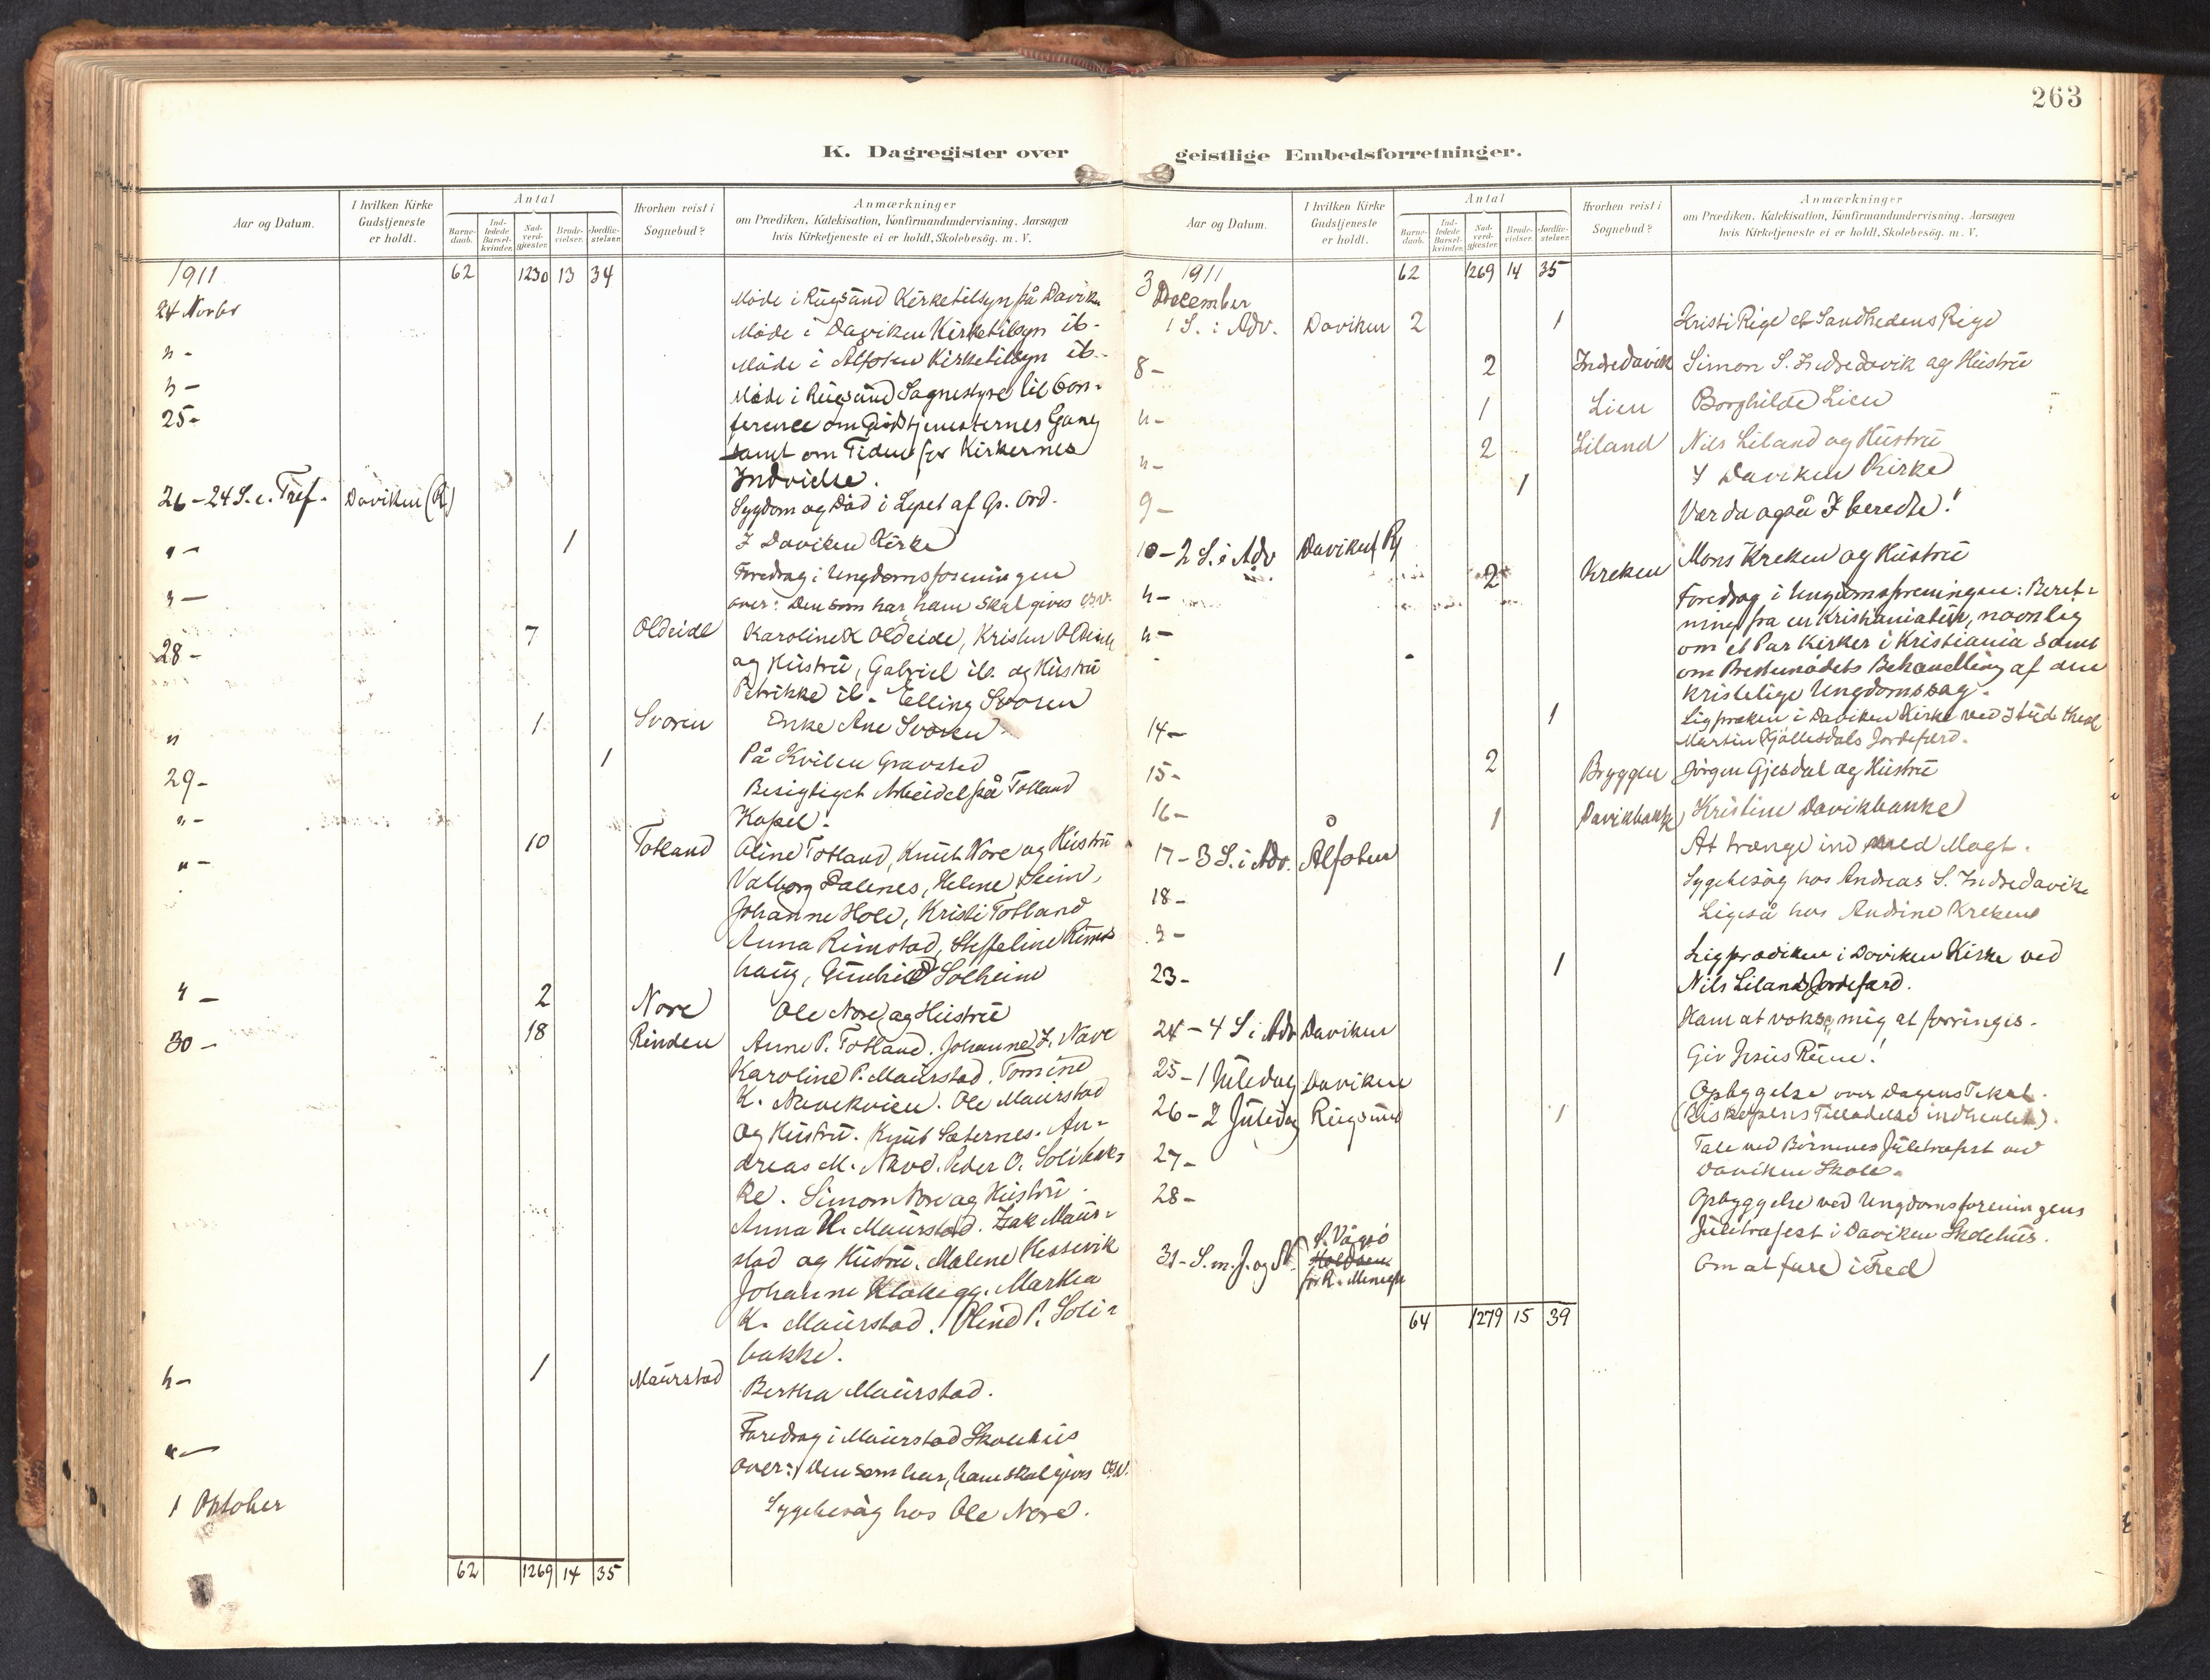 263
K. Dagregister over geistlige Embedsforretninger.
Aar og Datum. I hvilken Kirke Gudstjeneste er holdt. Antal Barnedaab. Indledede Barselkvinder. Nadverdgjester. Brudevielser. Jordfæstelser. Hvorhen reist i Sognebud? Anmærkninger om Prædiken, Katekisation, Konfirmandundervisning. Aarsagen hvis Kirketjeneste ei er holdt, Skolebesøg. m. V.
1911 62 1230 13 34
24 Novbr Møde i Rugsund Kirketilsyn på Daviken
Møde i Daviken Kirketilsyn ib-
" - Møde i Ålfoten Kirketilsyn ib-
" - Møde i Rugsund Sognestyre til Con-
25- ference om Gudstjenesternes Gang
samt om Tiden for Kirkernes
Indvielse.
26 - 24 S. e. Tref. Daviken (R) Sygdom og Død i Lyset af Gs. Ord.
" - 1 I Daviken Kirke
" - Foredrag i Ungdomsforeningen
over: Den som har ham skal gives o.s.v.
28 - 7 Oldeide Karoline K Oldeide, Kristen Oldeide
og Hustru, Gabriel ib. og Hustru
Petrikke ib. Elling Svoren
" 1 Svoren Enke Ane Svoren
29- 1 På Hvilen Gravsted
" - Besigtiget Arbeidet på Totland
Kapel.
" - 10 Totland Aline Totland, Knut Nore og Hustru
Valborg Dalenes, Helene Seim,
Johanne Hole, Kristi Totland
Anna Rimstad, Steffeline Rims
haug, Gunhild Solheim
" - 2 Nore Ole Nore og Hustru
30 - 18 Rinden Anne P. Totland. Johanne J. Nave
Karoline P. Maurstad. Tomine
K. Navekvien. Ole Maurstad
og Hustru. Knut Sæternes. An-
dreas M. Nave. Peder O. Solibak-
ke. Simon Nore og Hustru.
Anna H. Maurstad. Isak Maur-
stad og Hustru. Malene Hessevik
Johanne Klakegg. Martha
K. Maurstad. Oline P. Soli-
bakke.
" - 1 Maurstad Bertha Maurstad.
" - Foredrag i Maurstad Skolehus
over: Den som har, ham skal gives o.s.v.
1 Oktober Sygebesøg hos Ole Nore.
62 1269 14 35
Aar og Datum. I hvilken Kirke Gudstjeneste er holdt. Antal Barnedaab. Indledede Barselkvinder. Nadverdgjester. Brudevielser. Jordfæstelser. Hvorhen reist i Sognebud? Anmærkninger om Prædiken, Katekisation, Konfirmandundervisning. Aarsagen hvis Kirketjeneste ei er holdt, Skolebesøg. m. V.
1911 62 1269 14 35
3 December
1 S. i Adv. Daviken 2 1 Kristi Rige et Sandhedens Rige
8- 2 Indredavik Simon S. Indredavik og Hustru
" - 1 Lien Borghilde Lien
" - 2 Liland Nils Liland og Hustru
9- 1 I Daviken Kirke
10 - 2 S. i Adv Daviken R Vær da også I beredte!
" - 2 Kreken Mons Kreken og Hustru
" - Foredrag i Ungdomsforeningen: Beret-
ning fra en Kristianiatur, navnlig
om et Par Kirker i Kristiania samt
om Prestemødets Behandling af den
kristelige Ungdomssag.
14- 1 Ligpræken i Daviken Kirke ved Stud. theol
Martin Gjøllesdals Jordefærd.
15- 2 Bryggen Jørgen Gjesdal og Hustru
16- 1 Davikbakke Kristine Davikbakke
17 - 3 S. i Adv. Ålfoten At trænge ind med Magt.
18- Sygebesøg hos Andreas S. Indredavik
" - Ligeså hos Andrine Kreken
23- 1 Ligprædiken i Daviken Kirke ved
Nils Liland Jordefærd.
24 - 4 S i Adv Daviken Ham at vokse, mig at forringes.
25 - 1 Juledag Daviken Giv Jesus Rum!
26 - 2 Juledag Rugsund 1 Opbyggelse over Dagens Tekst.
(Biskopens Tilladelse indhentet).
27- Tale ved Børnenes Juletræfest ved
Daviken Skole.
28- Opbyggelse ved Ungdomsforeningens
Juletræfest i Daviken Skolehus.
31- S. m. J. og N. S. Vågsø
for R. Menigh Om at fare i Fred
64 1279 15 39